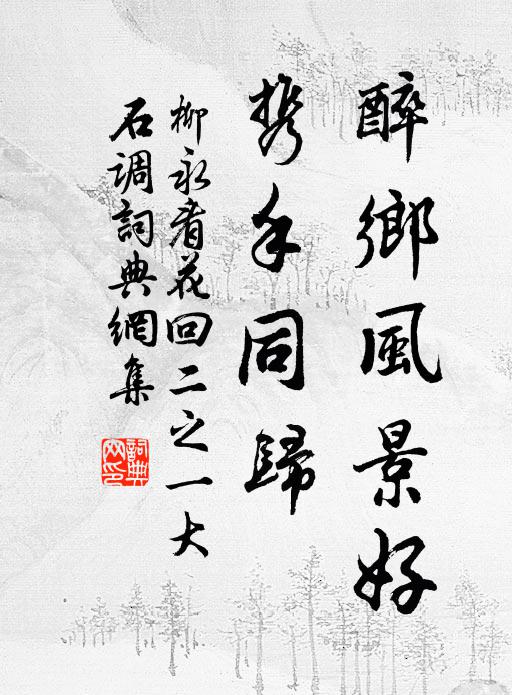 醉鄉風景好
携手同歸
柳永看花回二之一大
石調詞典網集
詞典网印